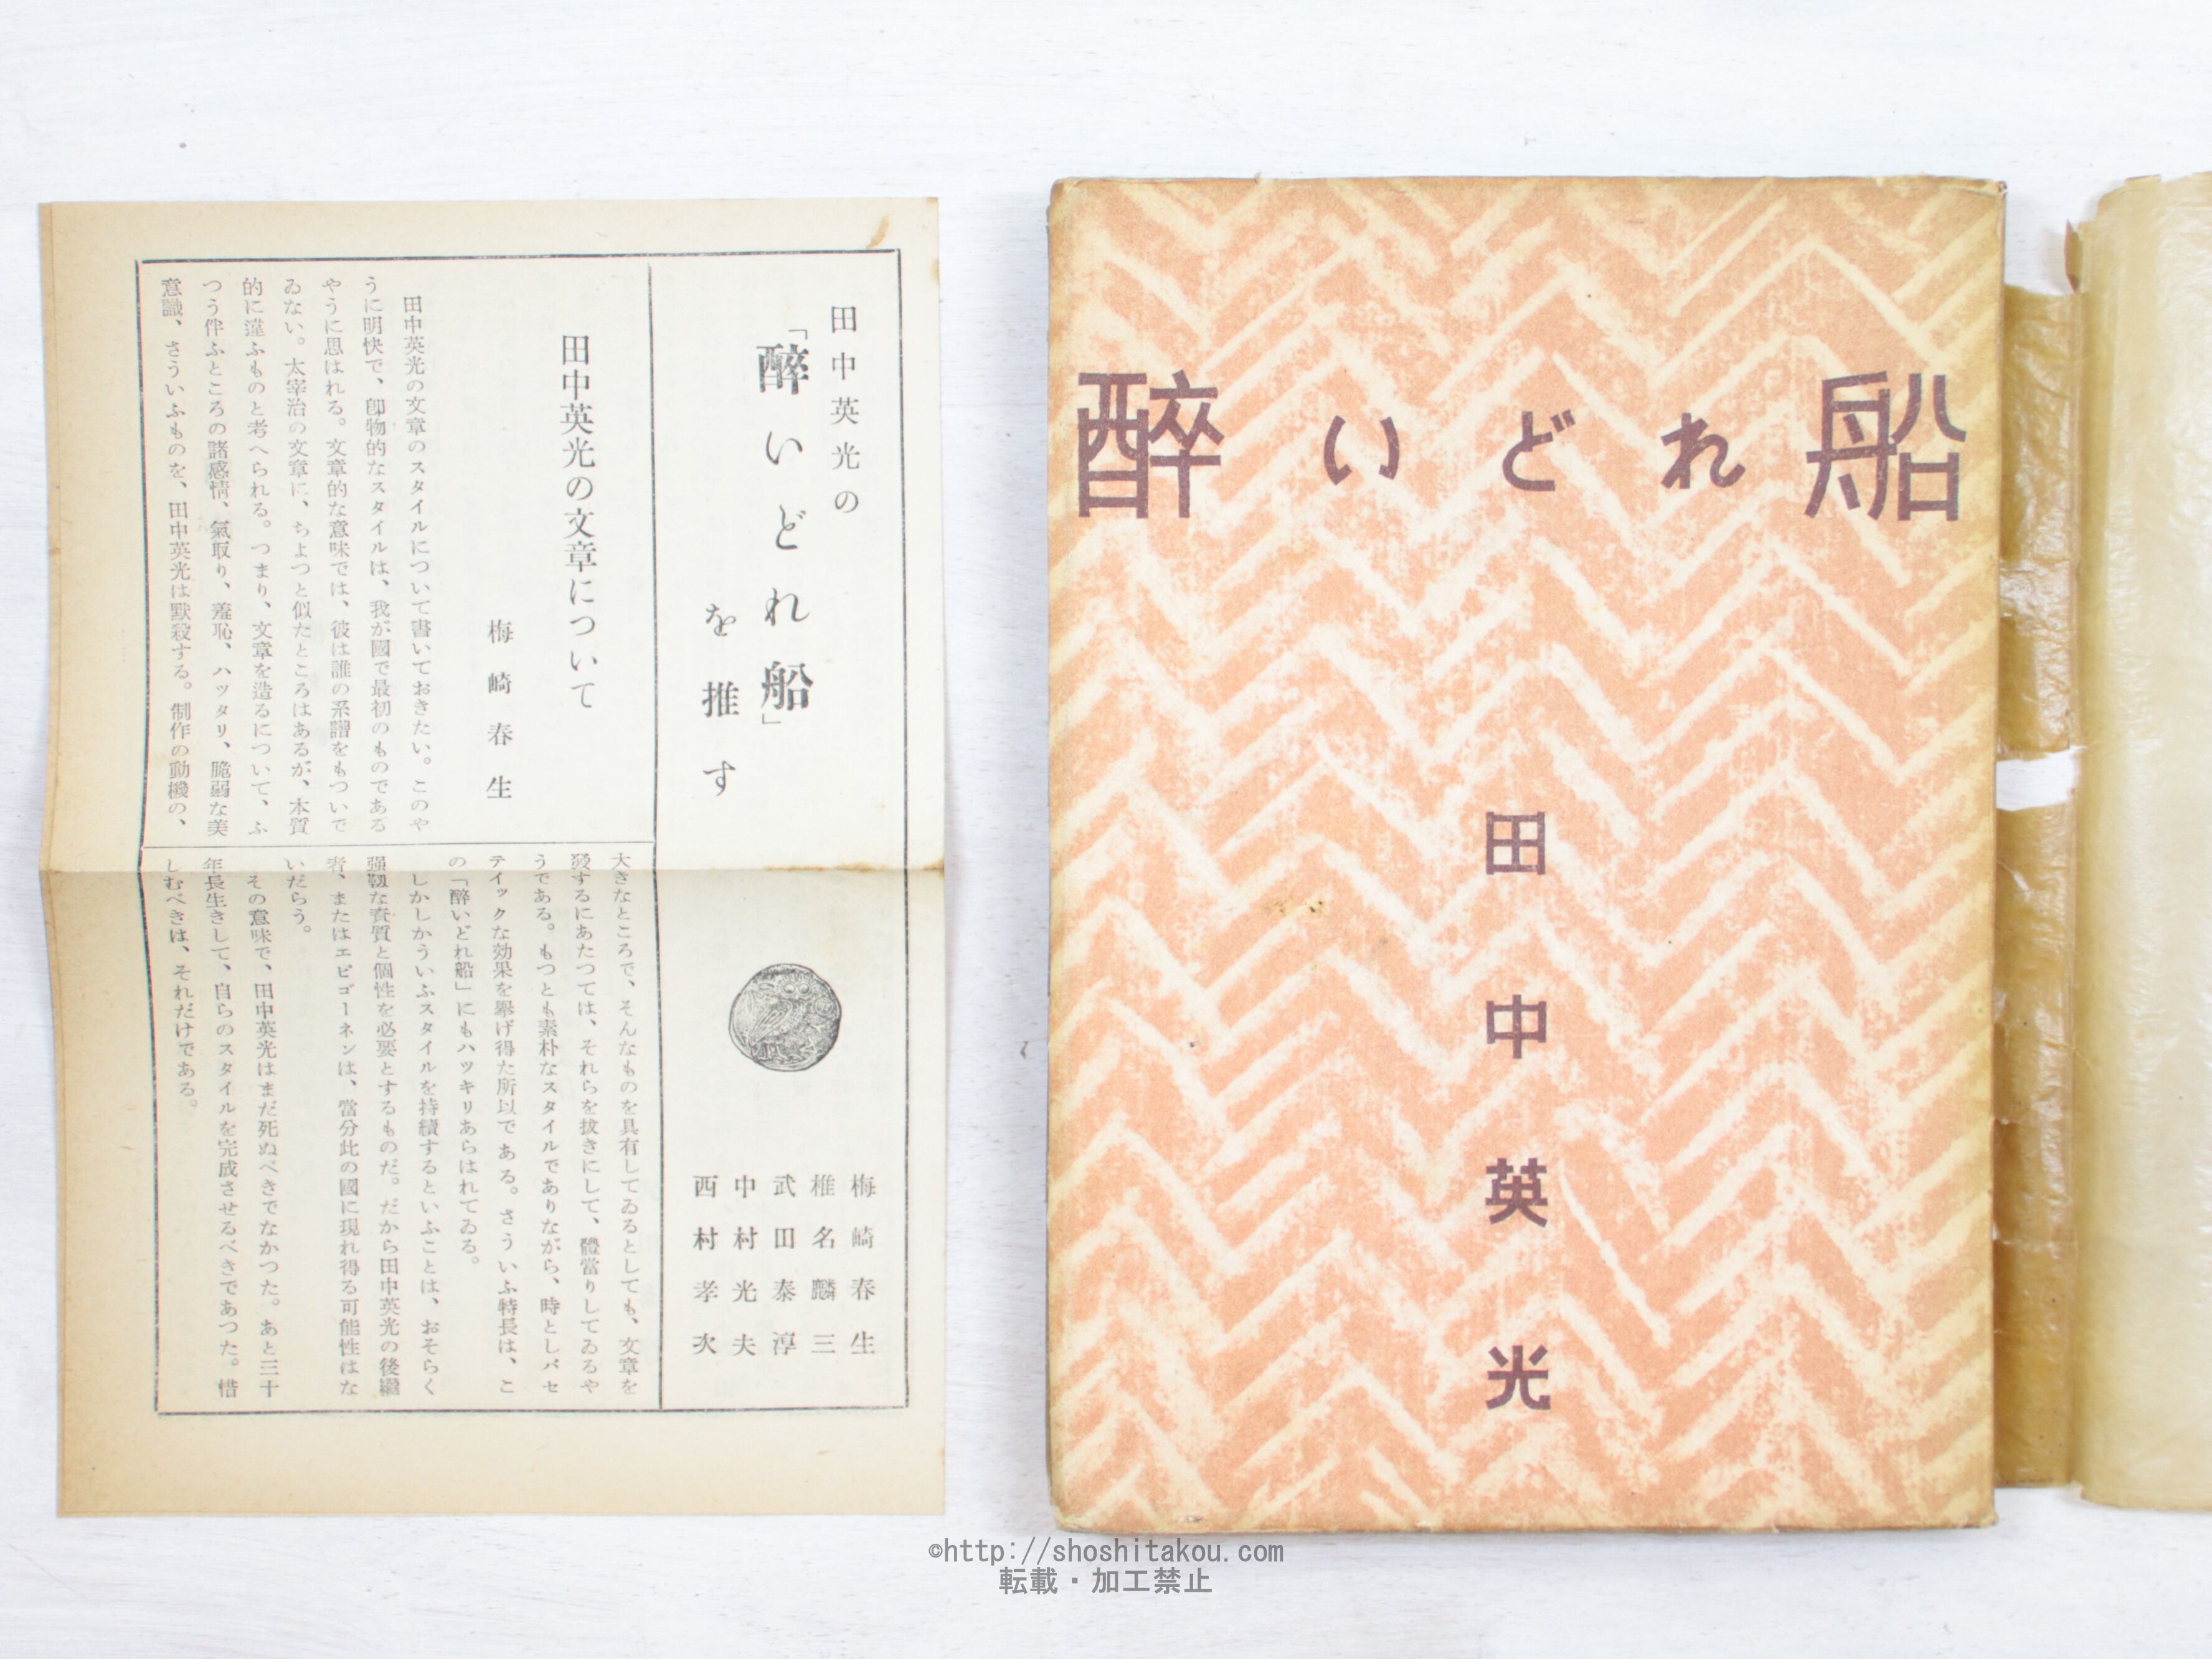 田中英光の
「醉いどれ船」
を推す
梅崎春生
椎名麟三
武田泰淳
中村光夫
西村孝次
田中英光の文章について
梅崎春生
田中英光の文章のスタイルについて書いておきたい。このや
うに明快で、卽物的なスタイルは、我が國で最初のものである
やうに思はれる。文章的な意味では、彼は誰の系譜をもついで
ゐない。太宰治の文章に、ちよつと似たところはあるが、本質
的に違ふものと考へられる。つまり、文章を造るについて、ふ
つう伴ふところの諸感情、氣取り、羞恥、ハッタリ、脆弱な美
意識、さういふものを、田中英光は默殺する。制作の動機の、
大きなところで、そんなものを具有してゐるとしても、文章を
發するにあたつては、それらを拔きにして、體當りしてゐるや
うである。もつとも素朴なスタイルでありながら、時としパセ
テイックな効果を擧げ得た所以である。さういふ特長は、こ
の「醉いどれ船」にもハツキリあらはれてゐる。
しかしかういふスタイルを持續するといふことは、おそらく
强靱な資質と個性を必要とするものだ。だから田中英光の後繼
者、またはエピゴーネンは、當分此の國に現れ得る可能性はな
いだらう。
その意味で、田中英光はまだ死ぬべきでなかつた。あと三十
年長生きして、自らのスタイルを完成させるべきであつた。惜
しむべきは、それだけである。
醉いどれ船
田中英光
©http://shoshitakou.com
転載・加工禁止